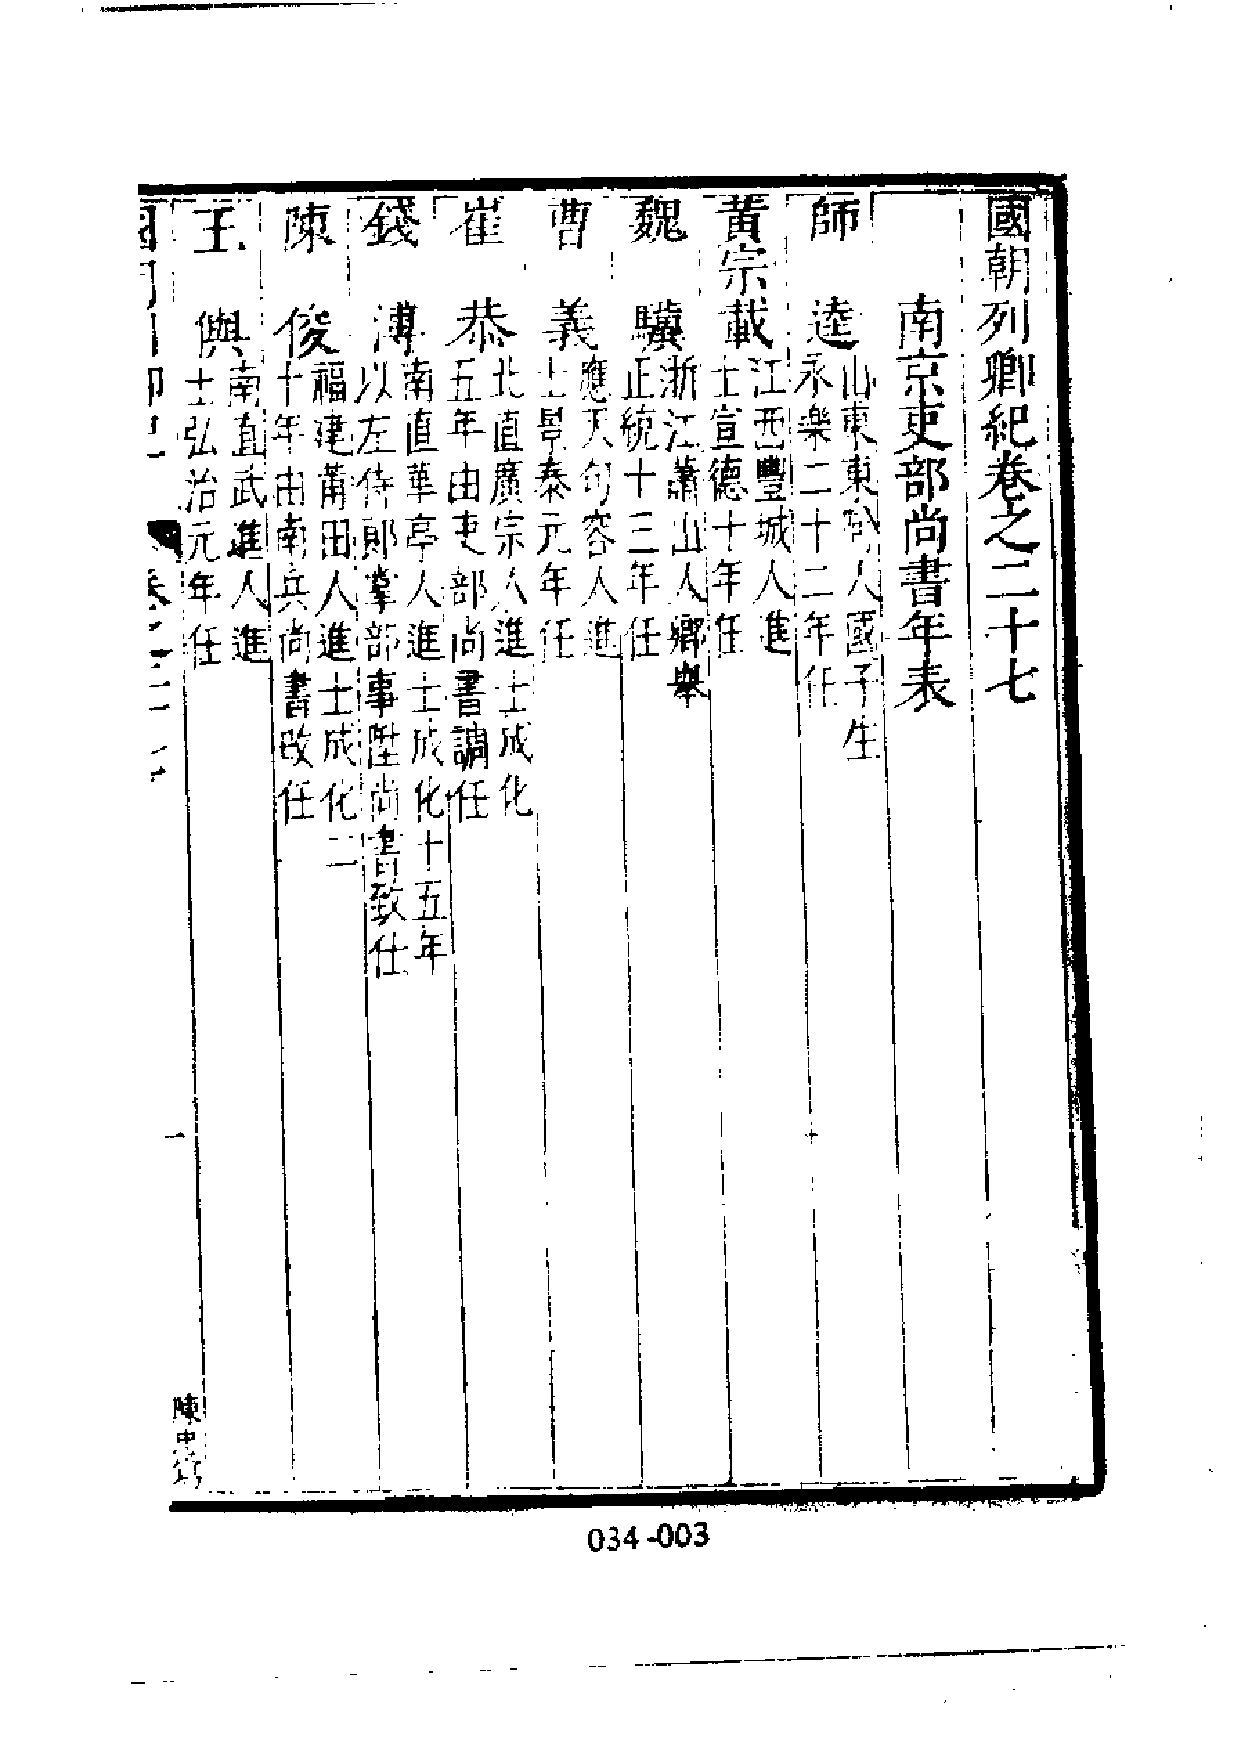 國朝列卿紀卷之二十七
南京吏部尚書年表
師　逵
山東東阿人國子生
永樂二十二年任
黃宗載
江西豐城人進
士宣德十年任
魏　驥
浙江蕭山人鄉舉
正統十三年任
曹　義
應天句容人進
士景泰元年任
崔　恭
北直廣宗人進士成化
五年由吏部尚書調任
錢　溥
南直華亭人進士成化十五年
以左侍郎掌部事陞尚書致仕
陳　俊
福建莆田人進士成化二
十年由南兵尚書改任
王　㒜
南直武進人進
士弘治元年任
國朝列卿紀
卷之二十七
一
034-003